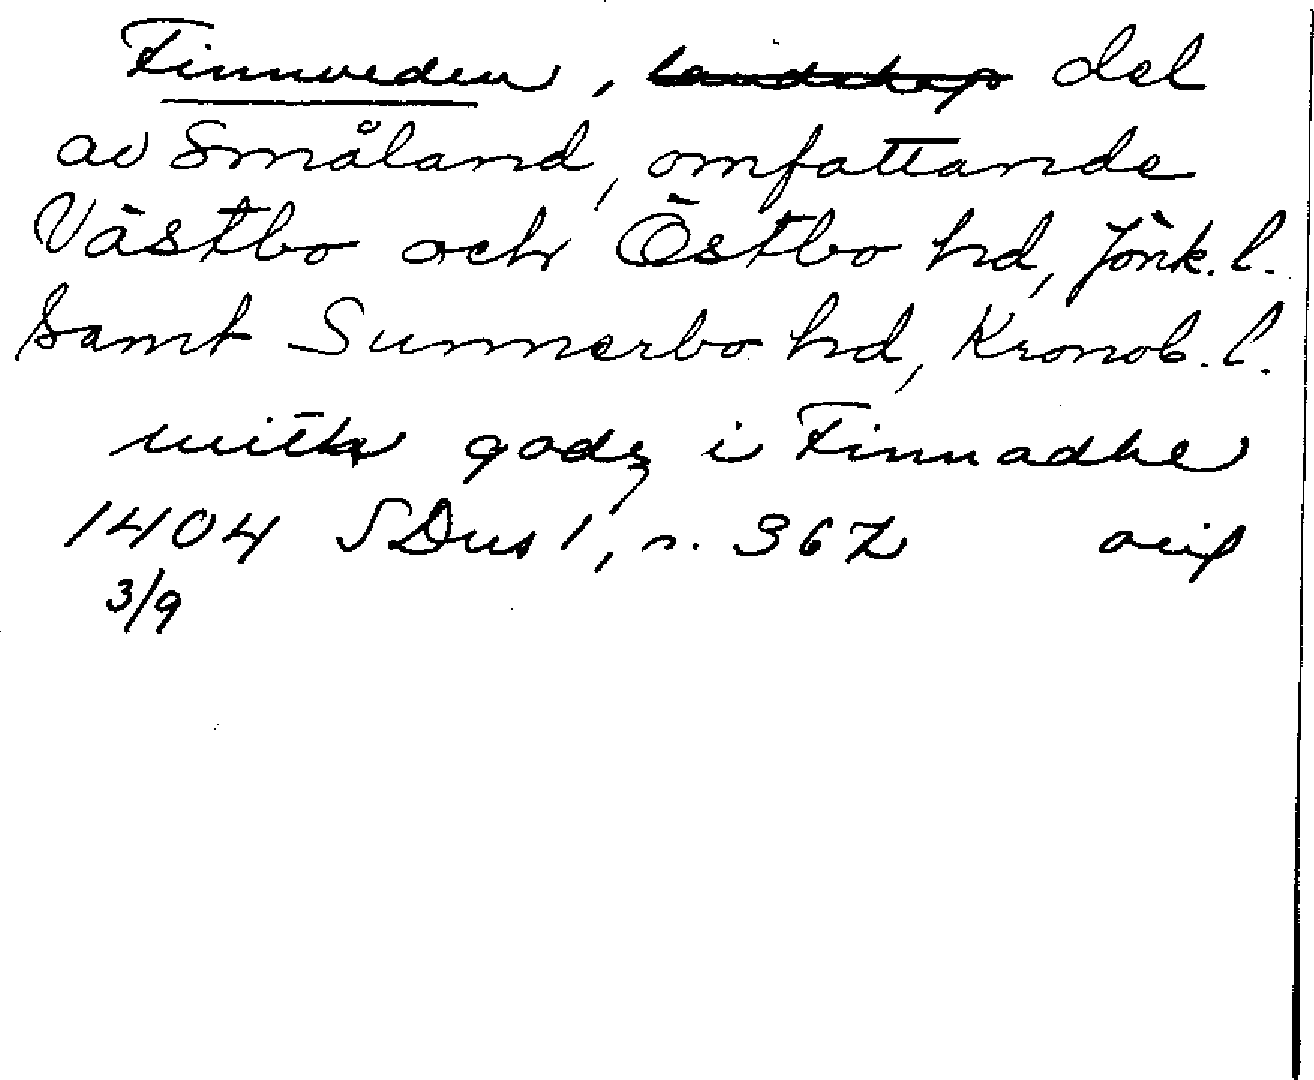 Finnveden, landskap del
av Småland, omfattande
Västbo och Östbo hd, Jönk. l.
samt Sunnerbo hd, Kronob. l.
mith godz i Finnadhe
1404 SDns 1, s. 367 avip
3/9